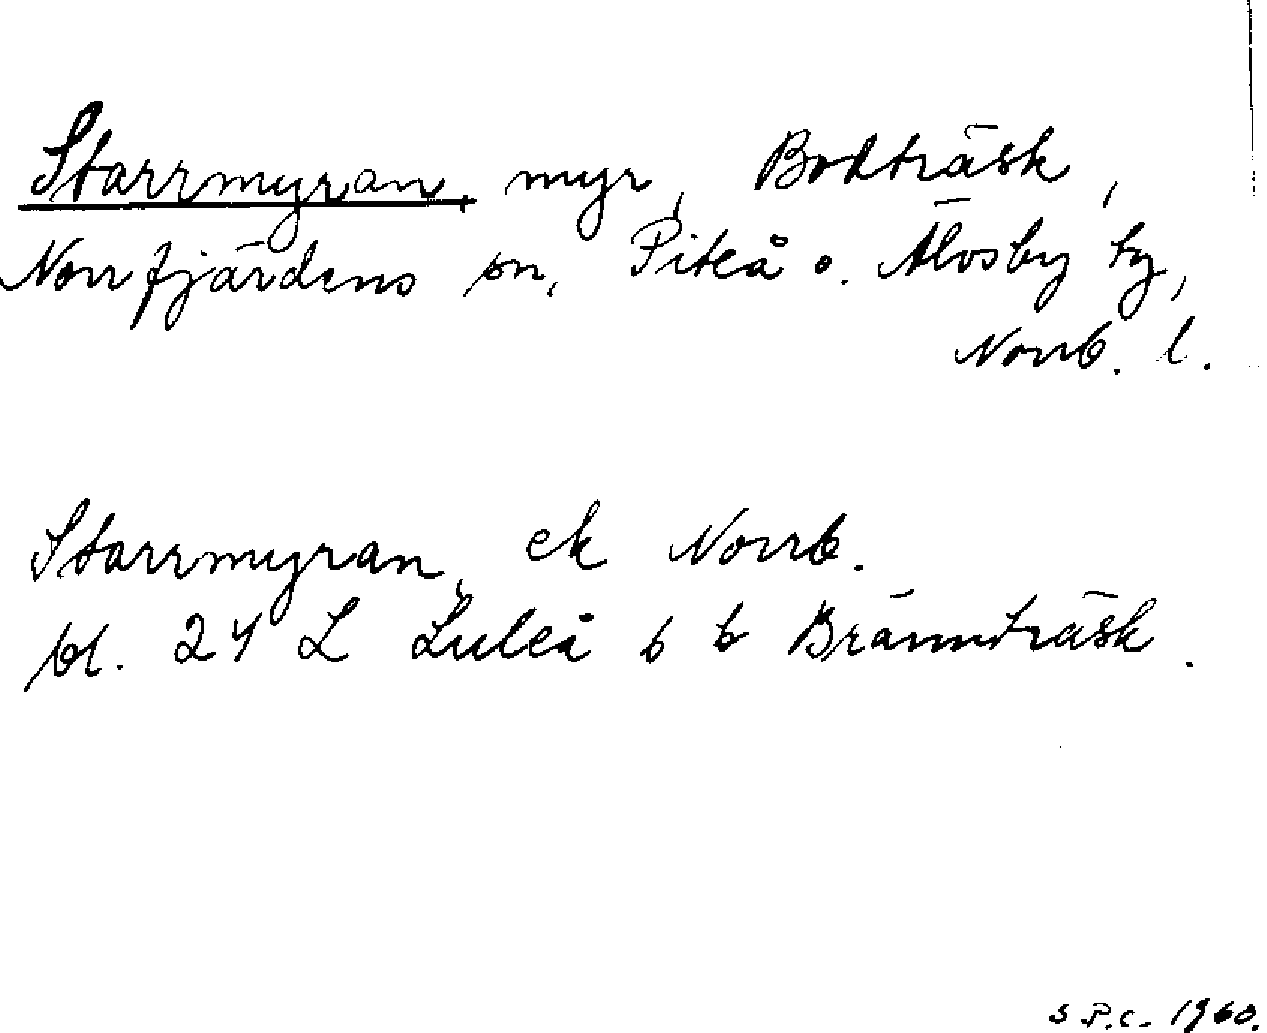 Starrmyran, myr, Bodträsk,
Norrfjärdens sn, Piteå o. Älvsby ty,
Norrb. l.
Starrmyran, ek Norrb.
bl. 24 L Luleå 6 b Brännträsk.
S P.C. 1960.